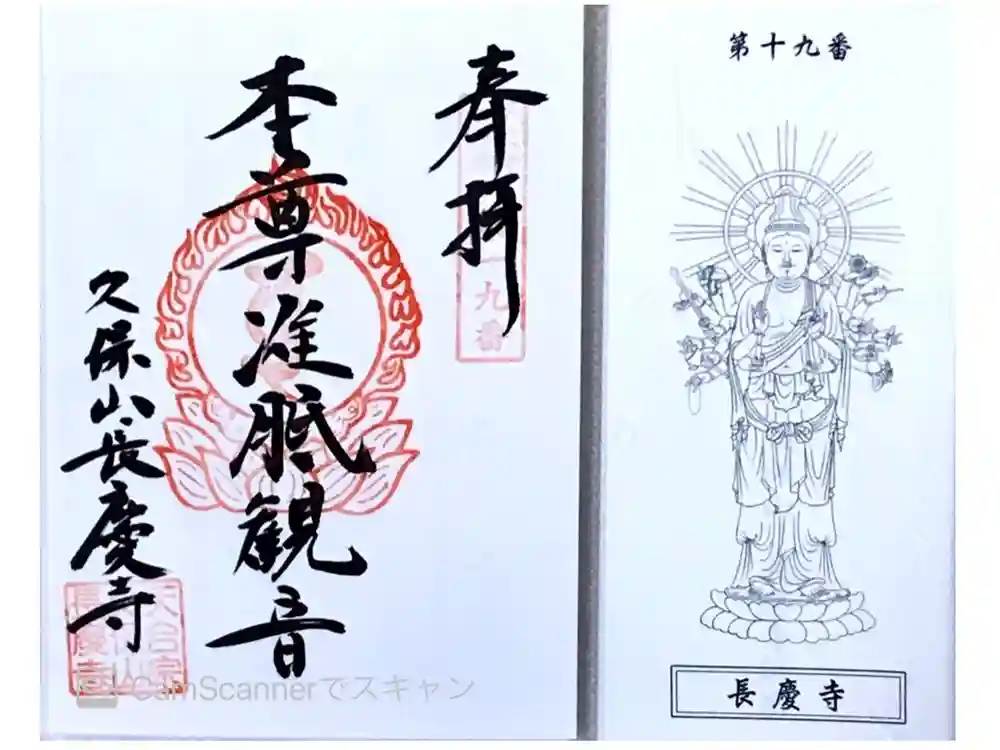 奉拝
九番
本尊准胝観音
久保山長慶寺
CamScannerでスキャン
第十九番
長慶寺